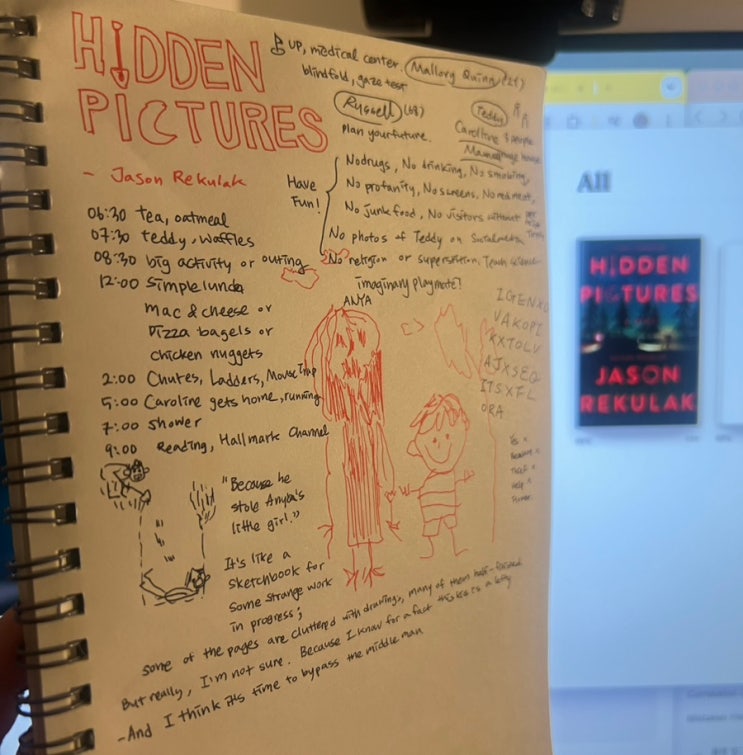 HIDDEN
PICTURES
- Jason Rekulak
UP, medical center. Mallory Quinn (21)
blindfold, gaze test
Russell (68)
Plan your future.
Teddy
Caroline
Have
Fun!
No drugs, No drinking, No smoking,
No profanity, No screens, No red meat,
No junk food, No visitors without
No photos of Teddy on Social media
No religion or superstition. Teach science
imaginary playmate?
ANYA
06:30 tea, oatmeal
07:30 teddy, waffles
08:30 big activity or outing
12:00 simple lunch
mac & cheese or
Pizza bagels or
chicken nuggets
2:00 Chutes, Ladders, Mouse Trap
5:00 Caroline gets home, running
7:00 shower
9:00 Reading, Hallmark Channel
IGENXO
VAKOPI
KXTOLV
AJXSEQ
ITSXFL
ORA
Yes x
Help x
"Because he
stole Anya's
little girl."
It's like a
sketchbook for
some strange work
in progress;
some of the pages are cluttered with drawings, many of them half-finished
But really, I'm not sure. Because I know for a fact this is a
-And I think it's time to bypass the middle man
All
HIDDEN
PICTURES
JASON
REKULAK